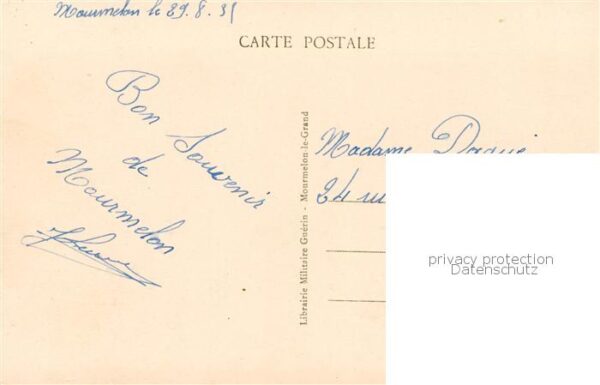 Mourmelon le 29.8.35
CARTE POSTALE
Bon Souvenir
de
Mourmelon
Librairie Militaire Guérin - Mourmelon-le-Grand
Madame
24 
privacy protection
Datenschutz